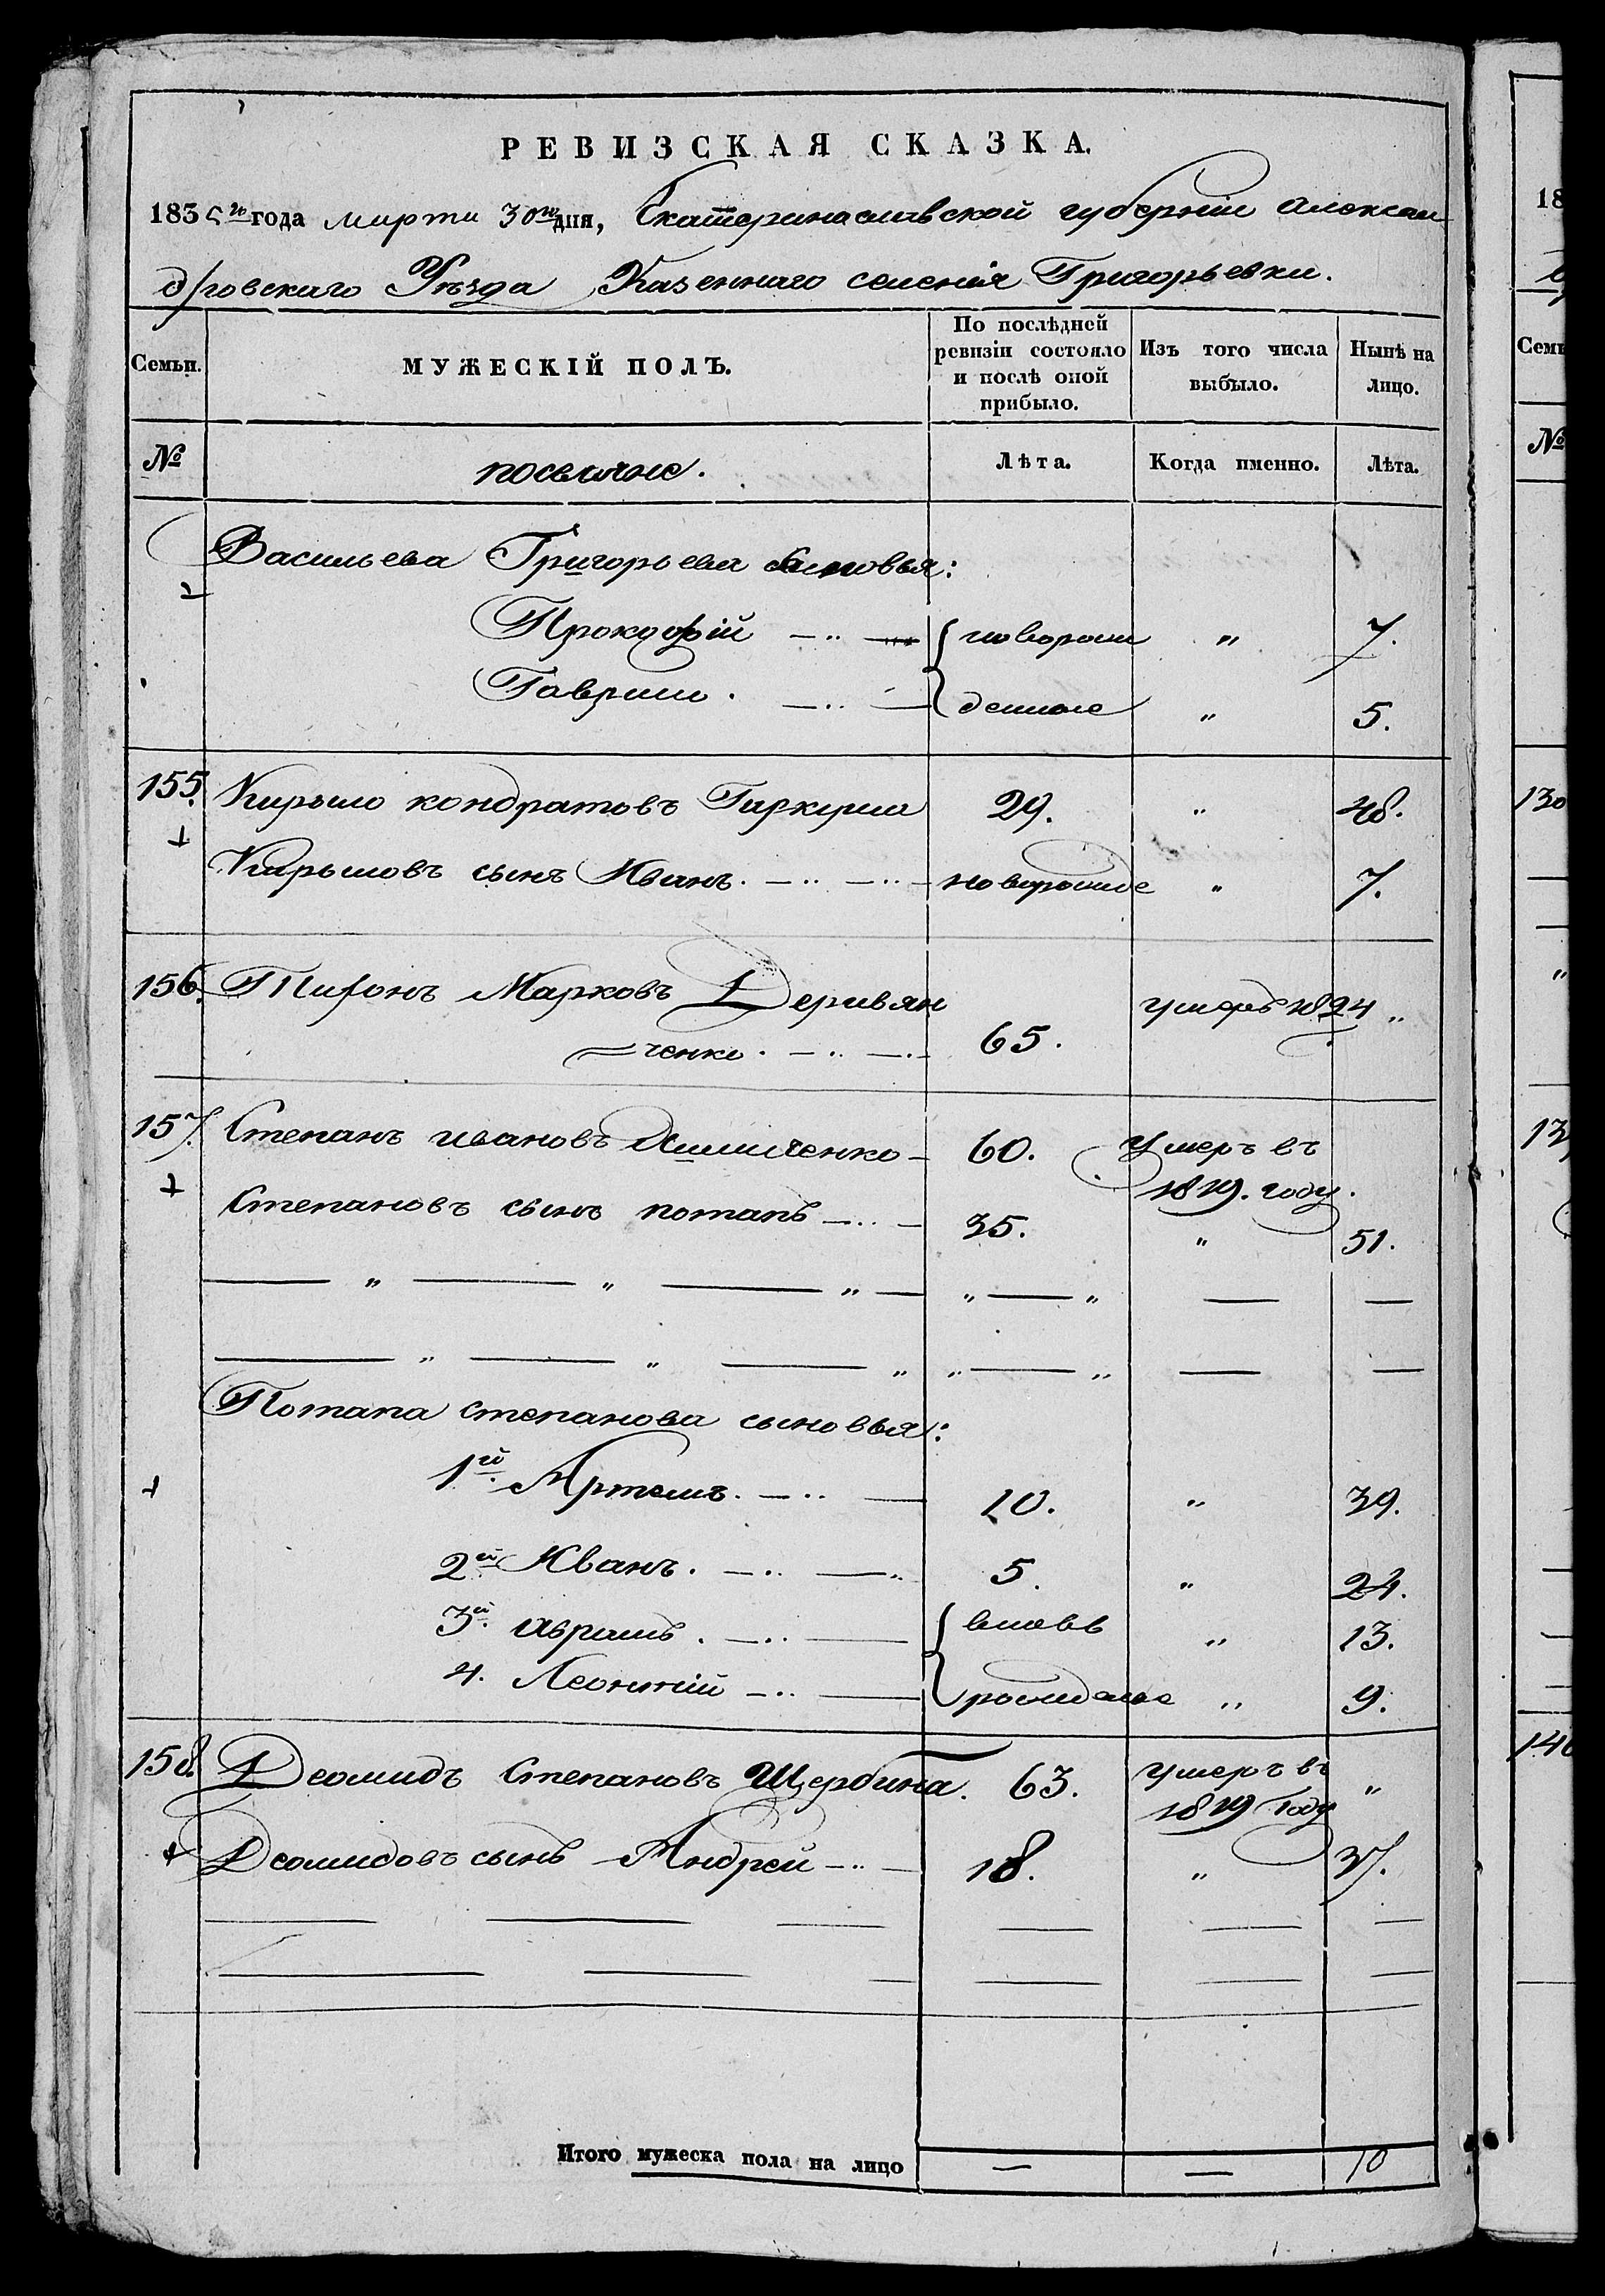 РЕВИЗСКАЯ СКАЗКА.
1835 го года марта 30 го дня, Екатеринославской губернии Алексан
дровскаго Уѣзда Казеннаго селения Григорьевки.
Семьи. МУЖЕСКІЙ ПОЛЪ. По послѣдней ревизіи состояло и послѣ оной прибыло. Изъ того числа выбыло. Нынѣ на лицо.
№ Лѣта. Когда именно. Лѣта.
Васильева Григорьева сыновья:
Прокофій новорож „ 7.
Гаврило. денные „ 5.
155. Кирыло кондратовъ 29. „ 48.
Кирыловъ сынъ Иванъ. „ 7.
156. Марковъ Деривян
ченко. 65. умеръ 1824 „
157. Степанъ ивановъ 60. Умеръ въ
1819. году.
Степановъ сынъ потапъ 35. „ 51.
Потапа степанова сыновья:
1й. Артемъ. 20. „ 39.
2й Иванъ. 5. „ 24.
3й. аврамъ. вновь „ 13.
4. Леонтий рожденые „ 9.
158. Деомидъ Степановъ Щербина. 63. умеръ въ „
1819 Году
Деомидовъ сынъ Андрей 18. „ 37.
Итого мужеска пола на лицо — — 10
18
Семь
№
130
13
140